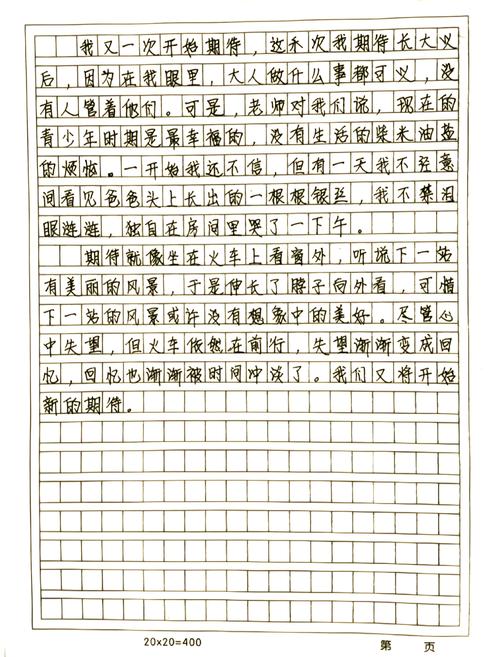 我又一次开始期待，这禾次我期待长大以
后，因为在我眼里，大人做什么事都可以，没
有人管着他们。可是，老师对我们说，现在的
青少年时期是最幸福的，没有生活的柴米油盐
的烦恼。一开始我还不信，但有一天我不轻意
间看见爸爸头上长出的一根根银丝，我不禁泪
眼涟涟，独自在房间里哭了一下午。
期待就像坐在火车上看窗外，听说下一站
有美丽的风景，于是伸长了脖子向外看，可惜
下一站的风景或许没有想象中的美好。尽管心
中失望，但火车依然在前行，失望渐渐变成回
忆，回忆也渐渐被时间冲淡了。我们又将开始
新的期待。
20×20=400
第 页